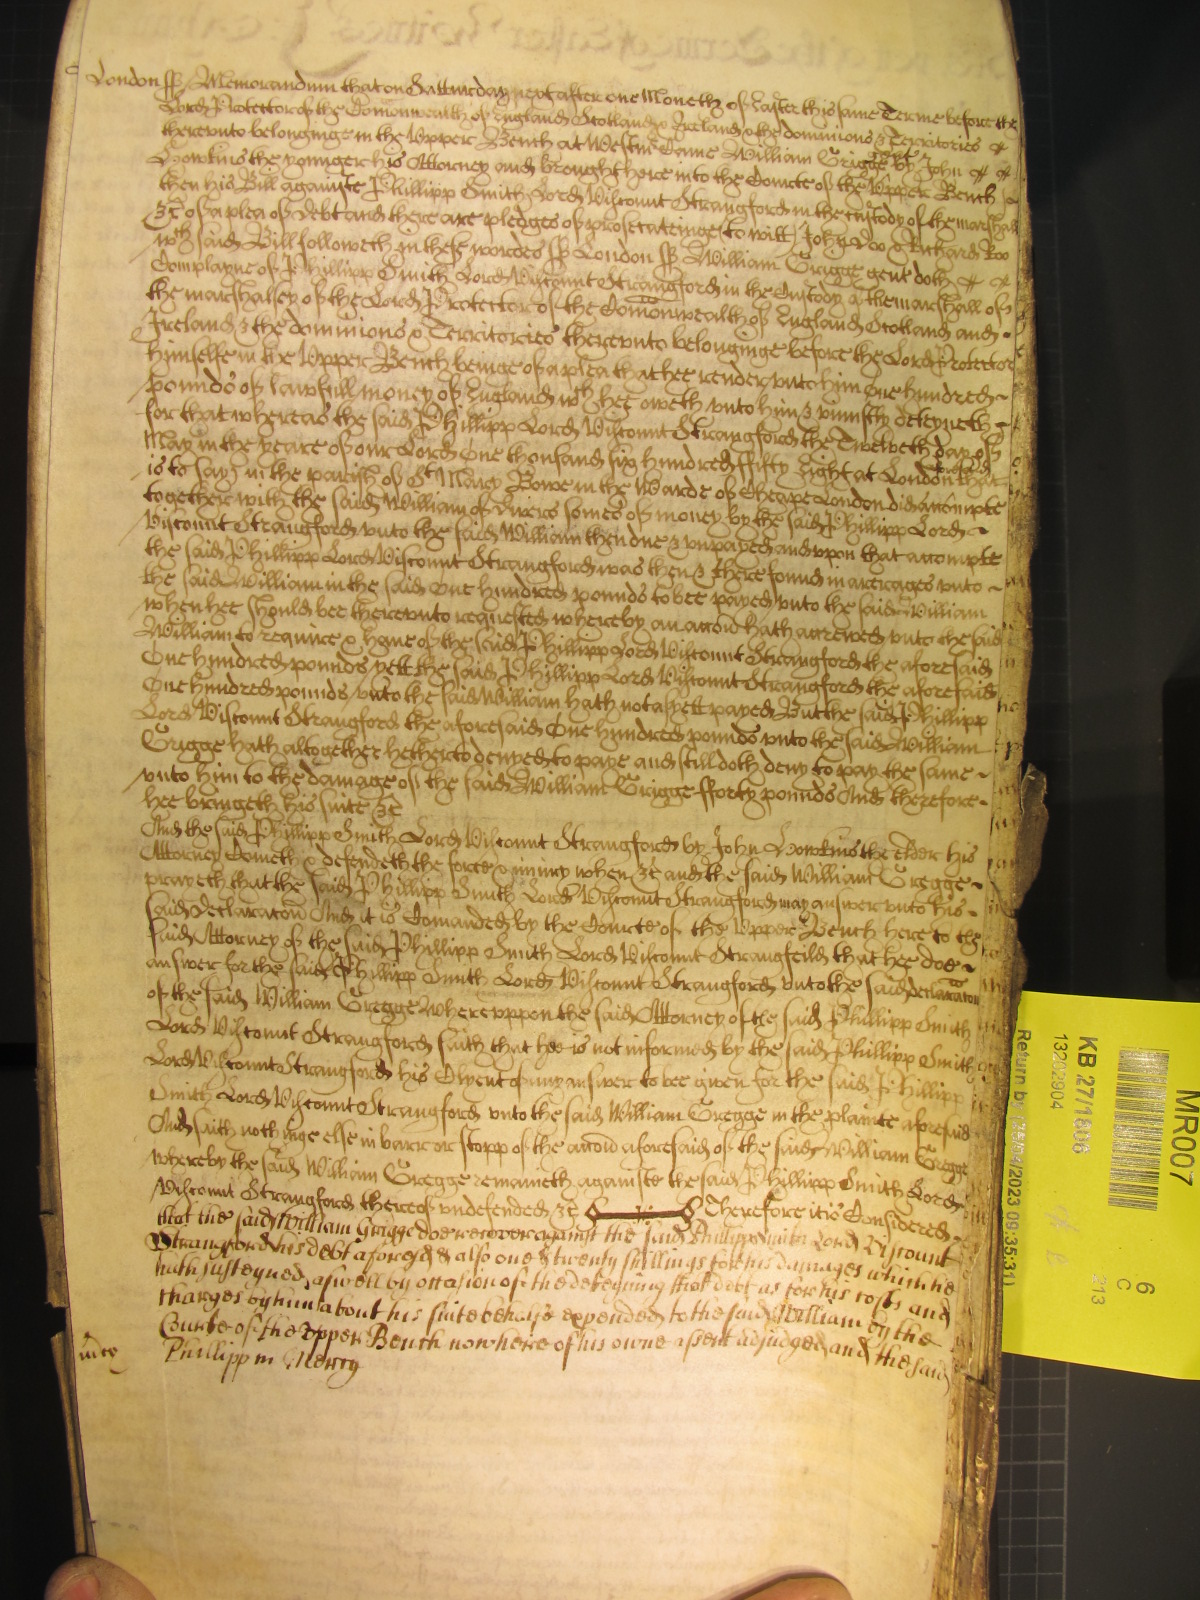 London ss Memorandum that on Satturday next after one Moneth of Easter this same Terme before the
Lord Protector of the Comonwealth of England Scotland & Ireland & the dominions & Territories
therevnto belonginge in the Vpper Bench at Westm̄ Came William Grigge gent by John
Howkins the younger his Attorney and brought here into the Courte of the Vpper Bench
then his Bill againste Phillipp Smith Lord Viscount Strangford in the custody of the marshall
&c of a plea of Debt and there are pledges of prosecuteinge to witt John Doo & Richard Roo
wch said Bill followeth in these wordes ss London ss William Grigge gent doth
Complayne of Phillipp Smith Lord Viscount Strangford in the Custody of the marshall of
the marshalsey of the Lord Protector of the Comonwealth of England Scotland and
Ireland & the dominions & Territories therevnto belonginge before the Lord Protector
himselfe in the Vpper Bench beinge of a plea that hee render vnto him One hundred
pounds of lawfull money of England wch hee oweth vnto him & vniustly deteyneth
for that whereas the said Phillipp Lord Viscount Strangford the Twelveth day of
May in the yeare of our Lord One thousand six hundred ffifty Eight at London that
is to say in the parish of St Mary Bowe in the Warde of Cheape London did accompte
together with the said William of divers somes of money by the said Phillipp Lord
Viscount Strangford vnto the said William then due & vnpayed and vpon that accompte
the said Phillipp Lord Viscount Strangford was then & there found in arrerages vnto
the said William in the said One hundred pounds to bee payed vnto the said William
when hee should bee therevnto requested whereby an accōn hath accrewed vnto the said
William to require & haue of the said Phillipp Lord Viscount Strangford the aforesaid
One hundred pounds yett the said Phillipp Lord Viscount Strangford the aforesaid
One hundred pounds vnto the said William hath not as yett payed But the said Phillipp
Lord Viscount Strangford the aforesaid One hundred pounds vnto the said William
Grigge hath altogether hetherto denyed to paye and still doth deny to pay the same
vnto him to the damage of the said William Grigge fforty pounds And therefore
hee bringeth his suite &c
And the said Phillipp Smith Lord Viscount Strangford by John Howkins the elder his
Attorney Cometh & defendeth the force & iniury when &c and the said William Gregge
prayeth that the said Phillipp Smith Lord Viscount Strangford may answer vnto his
said Declaracōn And it is Comanded by the Courte of the Vpper Bench here to the
said Attorney of the said Phillipp Smith Lord Viscount Strangfeild that hee doe
answer for the said Phillipp Smith Lord Viscount Strangford vnto the said declaracōn
of the said William Gregge wherevppon the said Attorney of the said Phillipp Smith
Lord Viscount Strangford saith that hee is not informed by the said Phillipp Smith
Lord Viscount Strangford his Clyent of any answer to bee given for the said Phillipp
Smith Lord Viscount Strangford vnto the said William Gregge in the plainte aforesaid
And saith nothinge else in barr or stopp of the accōn aforesaid of the said William Gregge
whereby the said William Gregge remaineth againste the said Phillipp Smith Lord
Viscount Strangford thereof vndefended &c Therefore it is Considered
that the said William Grigge doe recover against the said Phillipp Smith Lord Viscount
Strangford his debt aforesd & also one & twenty shillings for his damages which he
hath susteyned aswell by occasion of the deteyning that debt as for his costs and
charges by him about his suite in this behalfe expended to the said William by the
Courte of the vpper Bench now here of his owne assent adjudged and the said
Phillipp in Mercy
MR007
KB 27/1808
13202904
6
C
213
Return by (25/04/2023 09:35:31)